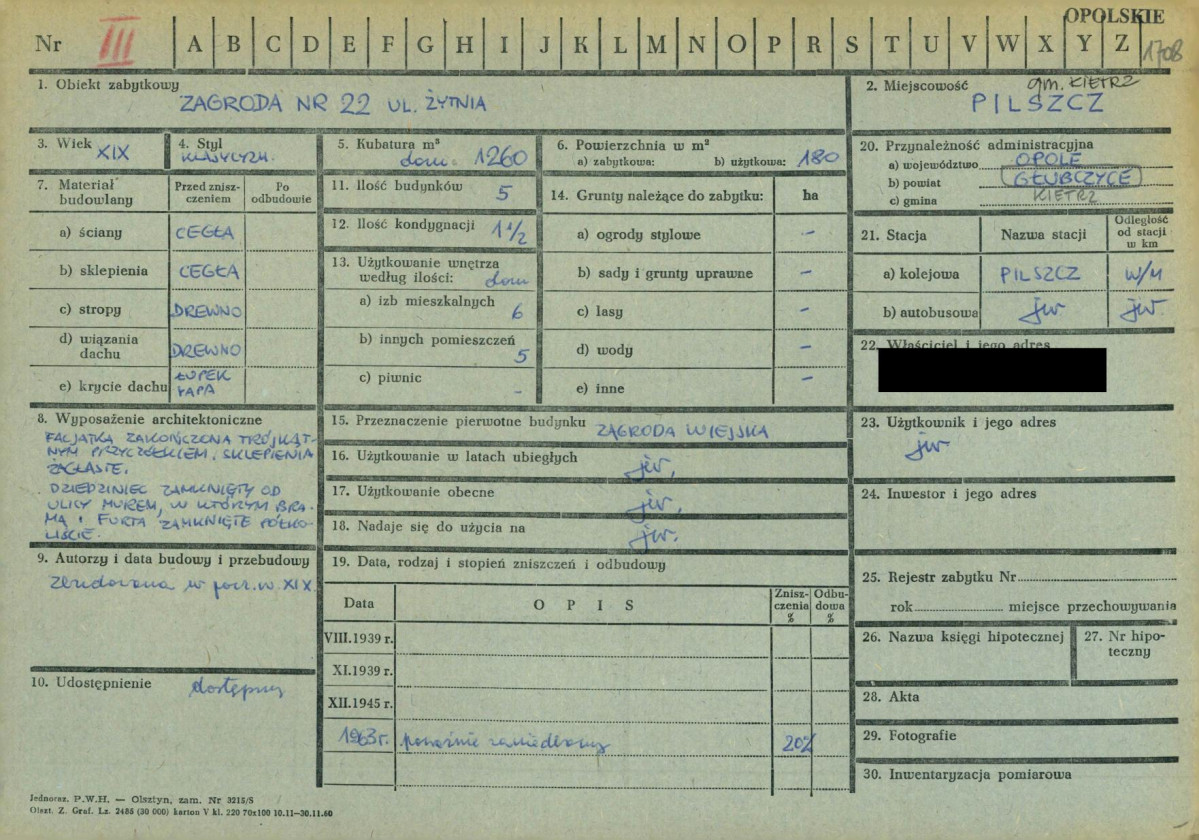 OPOLSKIE
Nr III A B C D E F G H I J K L M N O P R S T U V W X Y Z 1708
1. Obiekt zabytkowy
ZAGRODA NR 22 UL. ŻYTNIA
2. Miejscowość gm. KIETRZ
PILSZCZ
3. Wiek XIX
4. Styl KLASYCYZM.
5. Kubatura m³ dom. 1260
6. Powierzchnia w m²
a) zabytkowa: b) użytkowa: 180
20. Przynależność administracyjna
a) województwo OPOLE
b) powiat GŁUBCZYCE
c) gmina KIETRZ
7. Materiał budowlany
Przed zniszczeniem
Po odbudowie
a) ściany CEGŁA
b) sklepienia CEGŁA
c) stropy DREWNO
d) wiązania dachu DREWNO
e) krycie dachu ŁUPEK PAPA
11. Ilość budynków 5
12. Ilość kondygnacji 1 1/2
13. Użytkowanie wnętrza
według ilości: dom
a) izb mieszkalnych 6
b) innych pomieszczeń 5
c) piwnic -
14. Grunty należące do zabytku: ha
a) ogrody stylowe -
b) sady i grunty uprawne -
c) lasy -
d) wody -
e) inne -
21. Stacja Nazwa stacji Odległość od stacji w km
a) kolejowa PILSZCZ W/M
b) autobusowa jw jw.
22. Właściciel i jego adres
8. Wyposażenie architektoniczne
FACJATKA ZAKOŃCZONA TRÓJKĄT-
NYM PRZYCZÓŁKIEM. SKLEPIENIA
ŻAGLASTE.
DZIEDZINIEC ZAMKNIĘTY OD
ULICY MUREM, W KTÓRYM BRA-
MA I FURTA ZAMKNIĘTE PÓŁKO-
LIŚCIE.
15. Przeznaczenie pierwotne budynku ZAGRODA WIEJSKA
16. Użytkowanie w latach ubiegłych jw.
17. Użytkowanie obecne jw.
18. Nadaje się do użycia na jw.
23. Użytkownik i jego adres
jw
24. Inwestor i jego adres
9. Autorzy i data budowy i przebudowy
Zbudowana w pocz. w XIX
19. Data, rodzaj i stopień zniszczeń i odbudowy
Data OPIS Zniszczenia % Odbudowa %
VIII.1939 r.
XI.1939 r.
XII.1945 r.
1963 r. poważnie zaniedbany 20%
25. Rejestr zabytku Nr
rok miejsce przechowywania
26. Nazwa księgi hipotecznej
27. Nr hipoteczny
10. Udostępnienie dostępny
28. Akta
29. Fotografie
30. Inwentaryzacja pomiarowa
Jednoraz. P.W.H. — Olsztyn, zam. Nr 3215/S
Olszt. Z. Graf. Lz. 2485 (30 000) karton V kl. 220 70x100 10.11—30.11.60